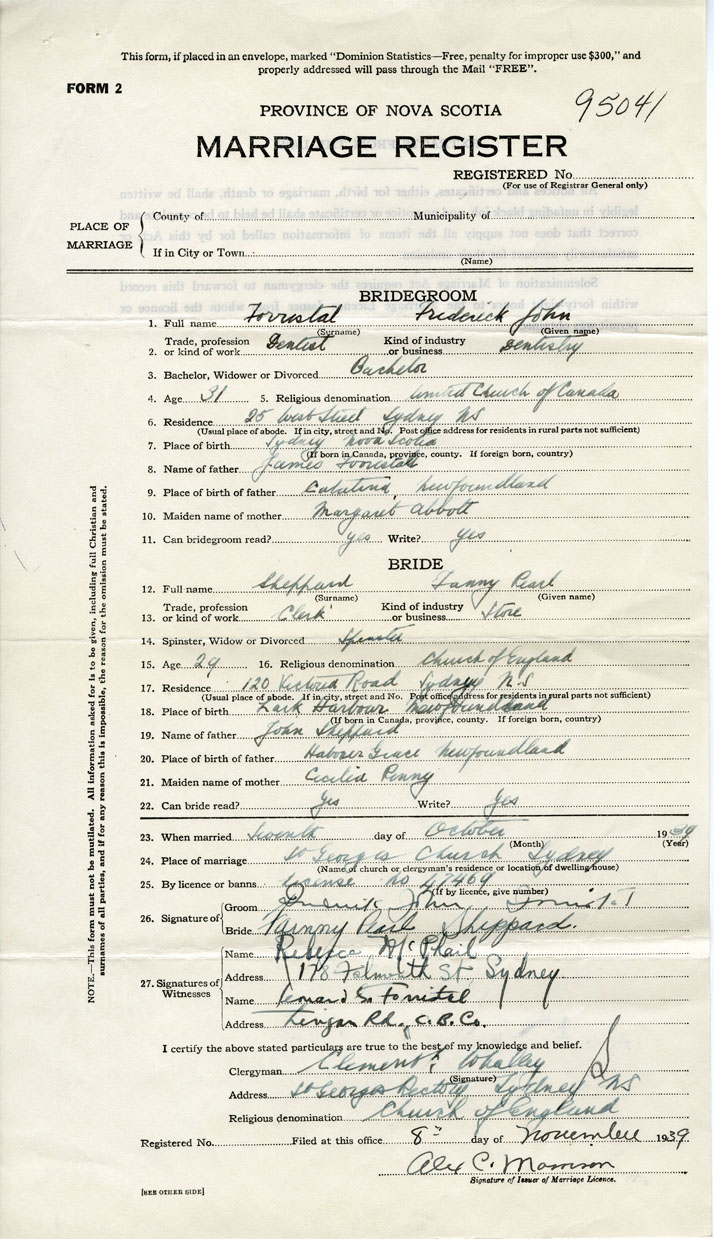 This form, if placed in an envelope, marked "Dominion Statistics—Free, penalty for improper use $300," and
properly addressed will pass through the Mail "FREE".
FORM 2
95041
PROVINCE OF NOVA SCOTIA
MARRIAGE REGISTER
REGISTERED No.
(For use of Registrar General only)
PLACE OF MARRIAGE
County of Municipality of
If in City or Town
(Name)
BRIDEGROOM
1. Full name Forristal Frederick John
(Surname) (Given name)
2. Trade, profession or kind of work Dentist Kind of industry or business Dentistry
3. Bachelor, Widower or Divorced Bachelor
4. Age 31 5. Religious denomination United Church of Canada
6. Residence 25 West Street Sydney NS
(Usual place of abode. If in city, street and No. Post office address for residents in rural parts not sufficient)
7. Place of birth Sydney Nova Scotia
(If born in Canada, province, county. If foreign born, country)
8. Name of father James Forristal
9. Place of birth of father Catalina, Newfoundland
10. Maiden name of mother Margaret Abbott
11. Can bridegroom read? yes Write? yes
BRIDE
12. Full name Sheppard Fanny Pearl
(Surname) (Given name)
13. Trade, profession or kind of work Clerk Kind of industry or business Store
14. Spinster, Widow or Divorced Spinster
15. Age 29 16. Religious denomination Church of England
17. Residence 120 Victoria Road Sydney N.S
(Usual place of abode. If in city, street and No. Post office address for residents in rural parts not sufficient)
18. Place of birth Lark Harbour Newfoundland
(If born in Canada, province, county. If foreign born, country)
19. Name of father John Sheppard
20. Place of birth of father Habour Grace Newfoundland
21. Maiden name of mother Cecilia Penny
22. Can bride read? Yes Write? Yes
23. When married Seventh day of October 1939
(Month) (Year)
24. Place of marriage St Georges Church Sydney
(Name of church or clergyman's residence or location of dwelling house)
25. By licence or banns License no 47469
(If by licence, give number)
26. Signature of Groom Frederick John Forristal
Bride Fanny Pearl Sheppard.
27. Signatures of Witnesses
Name Rebecca McPhail
Address 178 Falmouth St. Sydney
Name Forristal
Address Rd., C.B.Co.
I certify the above stated particulars are true to the best of my knowledge and belief.
Clergyman Clement Whalley
(Signature)
Address St Georges Rectory Sydney NS
Religious denomination Church of England
Registered No. Filed at this office 8 day of November 1939
Alex C. Morrison
Signature of Issuer of Marriage Licence.
[SEE OTHER SIDE]
NOTE.—This form must not be mutilated. All information asked for is to be given, including full Christian and
surnames of all parties, and if for any reason this is impossible, the reason for the omission must be stated.